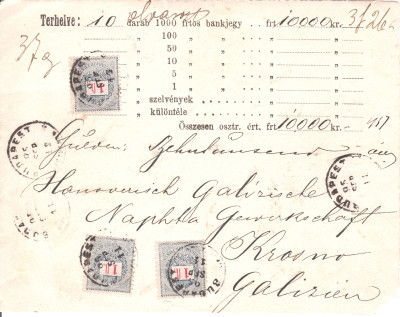 Terhelve: 10 darab 1000 frtos bankjegy frt 10,000 kr.
37g 100 " " " "
50 " " " "
10 " " " "
5 " " " "
1 " " " "
szelvények " "
különféle " "
Összesen osztr. ért. frt 10000 kr.
Gulden: Zehntausend
Hanoverisch Galizische
Naphta Gewerkschaft
Krosno
Galizien
BUDAPEST
BUDAPEST
BUDAPEST